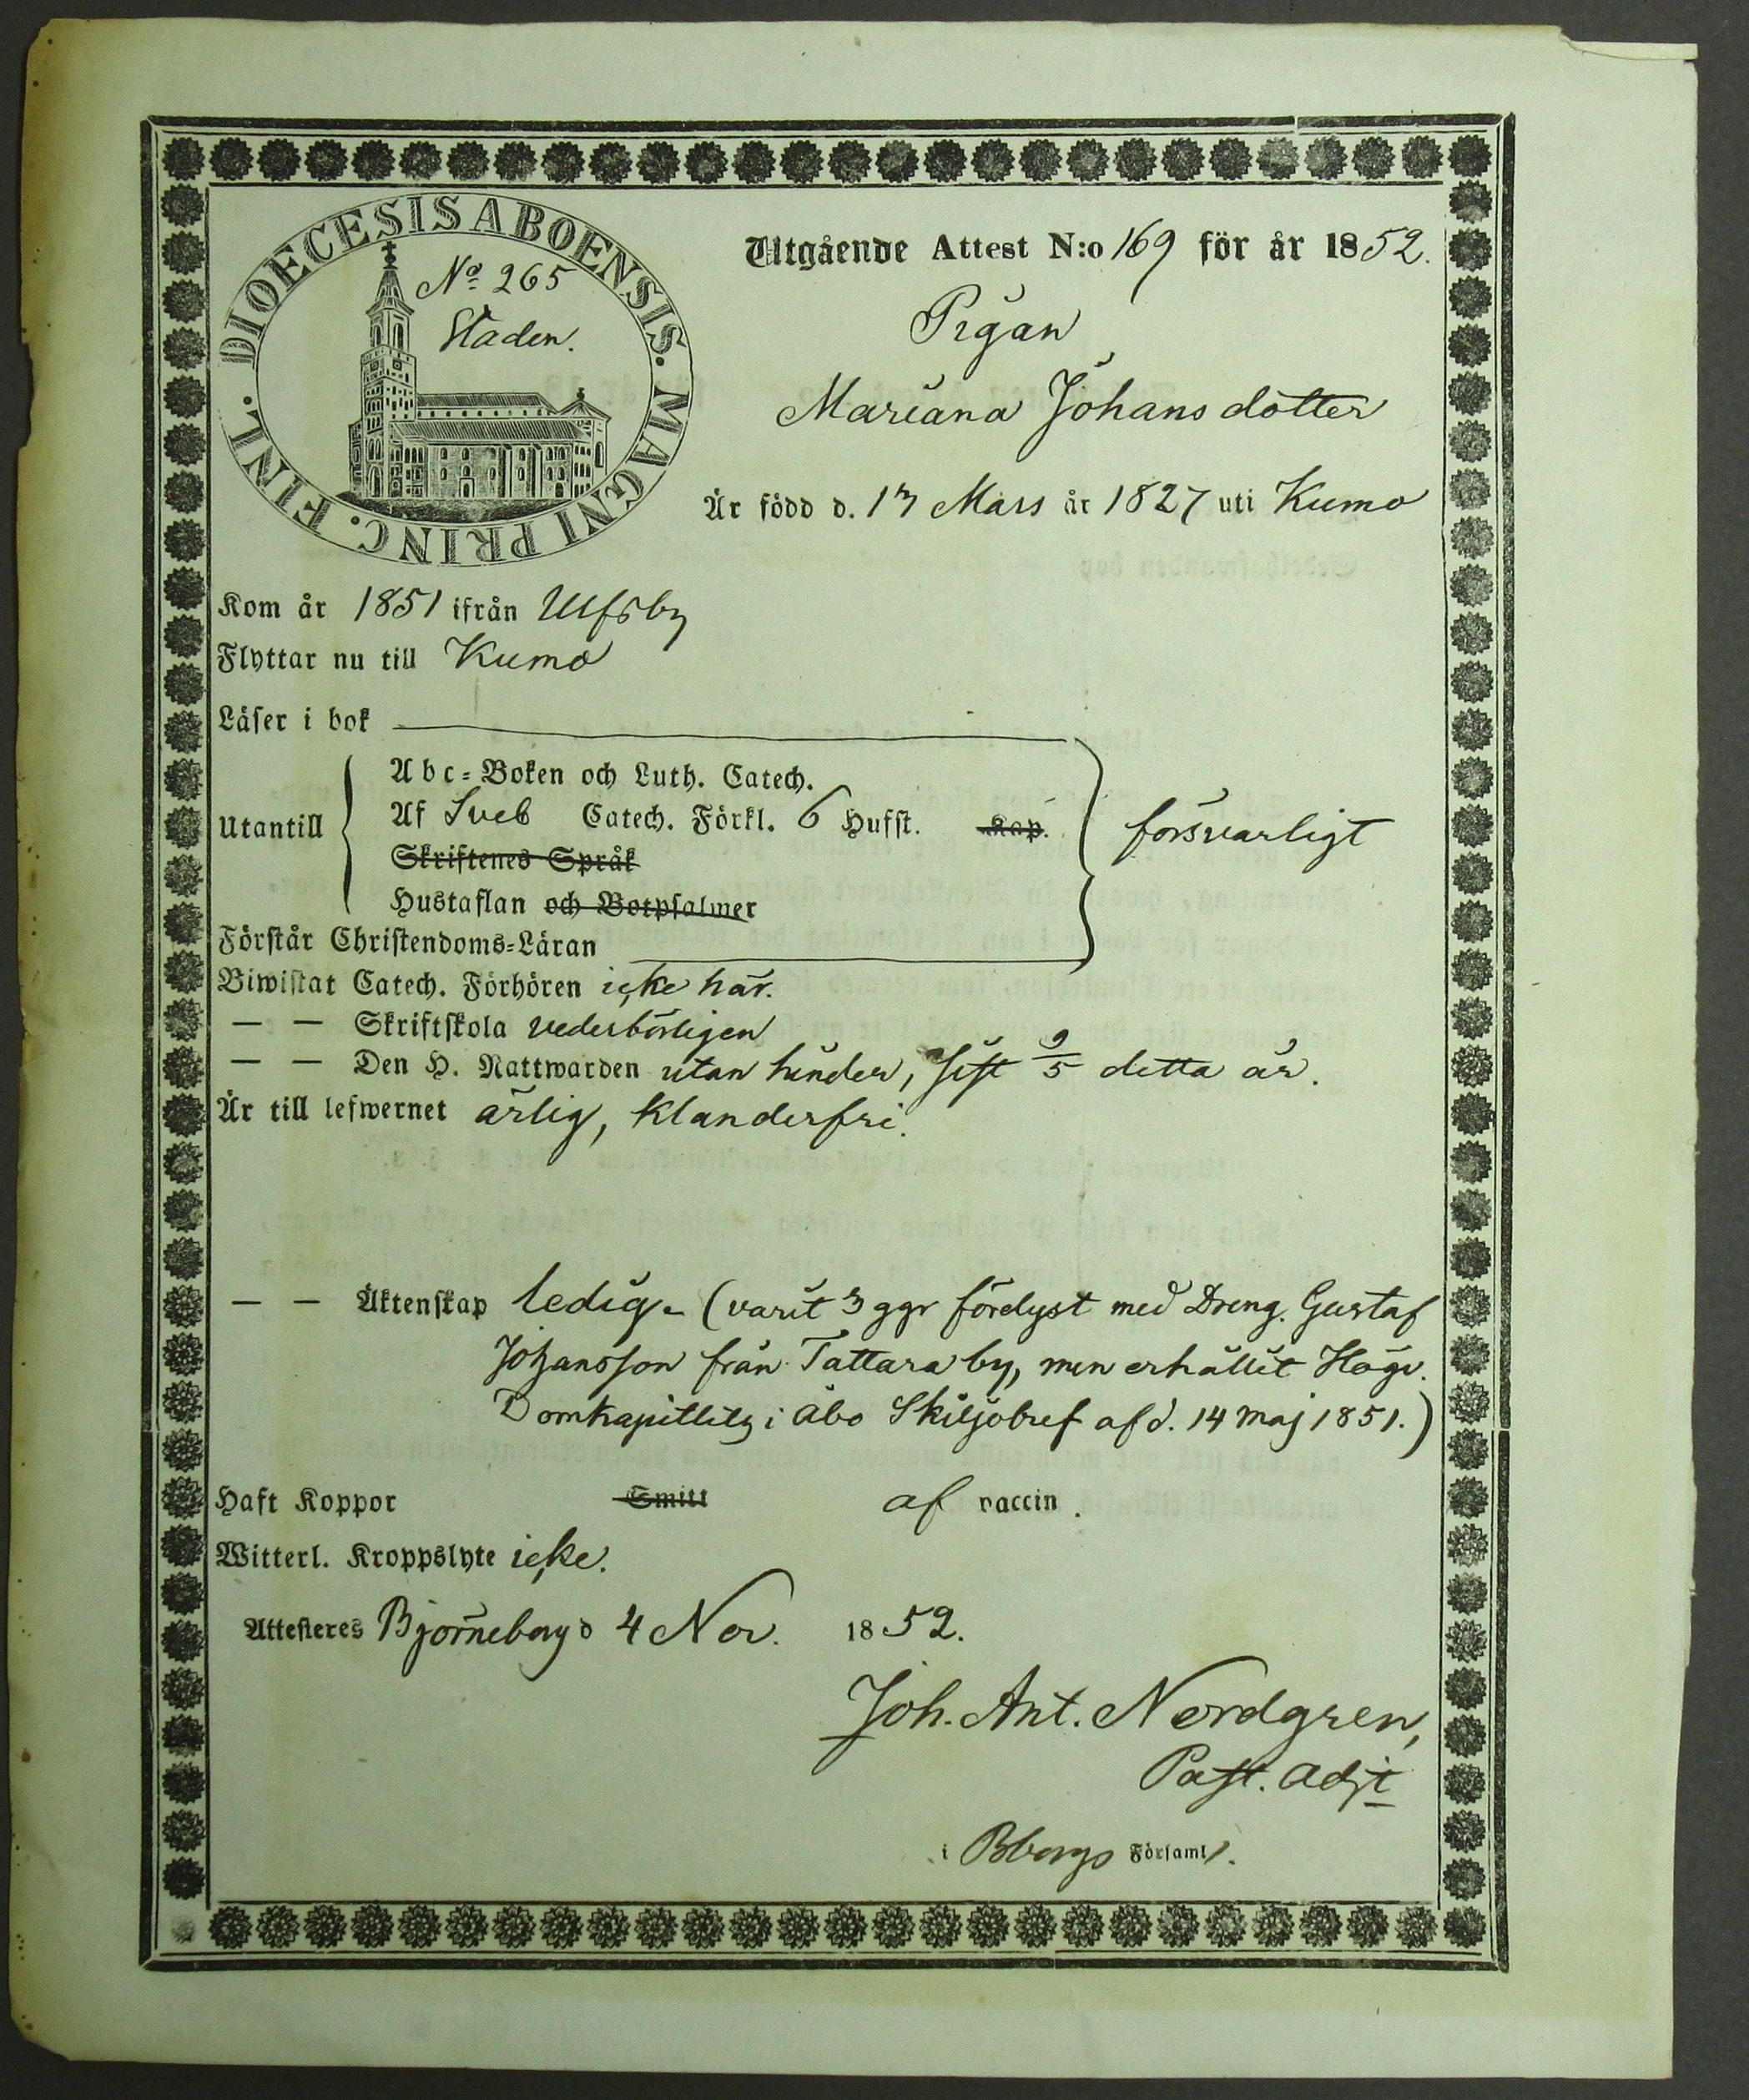 DIOECESIS ABOENSIS. MAGNI PRINC. FINL.
No 265
Staden.
Utgående Attest N:o 169 för år 1852.
Pigan
Mariana Johansdotter
Är född d. 13 Mars år 1827 uti Kumo
Kom år 1851 ifrån Ulfsby
Flyttar nu till Kumo
Läser i bok
Utantill
Abc-Boken och Luth. Catech.
Af Sveb Catech. Förkl. 6 Hufst. Kap.
försvarligt
Skriftenes Språk
Hustaflan och Botpsalmer
Förstår Christendoms-Läran
Biwistat Catech. Förhören icke här.
— — Skriftskola vederbörligen
— — Den H. Nattwarden utan hinder, sist 9/5 detta år.
Är till lefwernet ärlig, klanderfri.
— — Äktenskap ledig. (varit 3 ggr förelyst med Dreng. Gustaf
Johansson från Tattara by, men erhållit Högv.
Domkapitlets i Åbo Skiljobref af d. 14 Maj 1851.)
Haft Koppor Smitt af vaccin.
Witterl. Kroppslyte icke.
Attesteres Björneborg d 4 Nov. 1852.
Joh. Ant. Nordgren,
Past. Adjt
i Bborgs Församl.